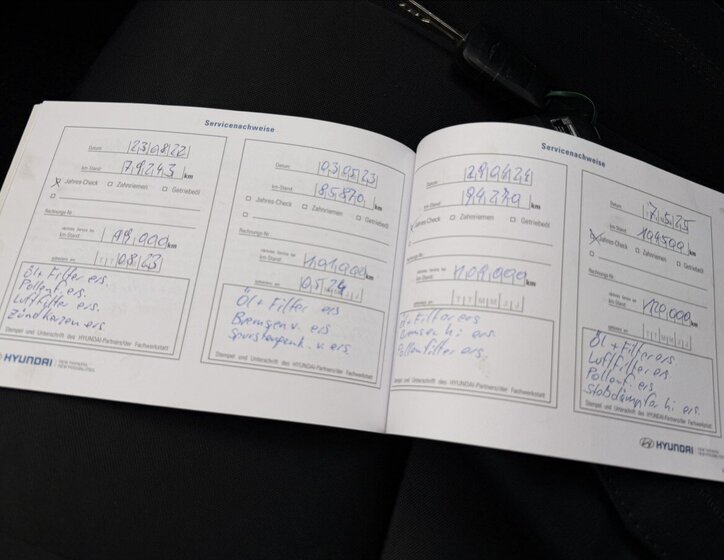 Servicenachweise
Datum: 23 08 22
km-Stand: 79243 km
Jahres-Check Zahnriemen Getriebeöl
Rechnungs-Nr.
nächster Service bei
km-Stand: km
spätestens am: 08 23
Öl + Filter ers.
Pollenf. ers.
Luftfilter ers.
Zündkerzen ers.
Stempel und Unterschrift des HYUNDAI-Partners/der Fachwerkstatt
HYUNDAI
Datum: 03 05 23
km-Stand: 85870 km
Jahres-Check Zahnriemen Getriebeöl
Rechnungs-Nr.
nächster Service bei
km-Stand: 101.000 km
spätestens am: 05 24
Öl + Filter ers
Bremsen v. ers
Spurstangenk. v. ers.
Stempel und Unterschrift des HYUNDAI-Partners/der Fachwerkstatt
Servicenachweise
Datum: 29 04 24
km-Stand: 94270 km
Jahres-Check Zahnriemen Getriebeöl
Rechnungs-Nr.
nächster Service bei
km-Stand: 109.000 km
T T M M J J
Öl + Filter ers
Bremsen hi ers.
Pollenfilter ers.
Stempel und Unterschrift des HYUNDAI-Partners/der Fachwerkstatt
Datum: 7.5.25
km-Stand: 104500 km
Jahres-Check Zahnriemen Getriebeöl
Rechnungs-Nr.
nächster Service bei
km-Stand: 120.000 km
spätestens am: T T M M J J
Öl + Filter ers.
Luftfilter ers.
Pollenf. ers.
Stoßdämpfer hi. ers.
Stempel und Unterschrift des HYUNDAI-Partners/der Fachwerkstatt
HYUNDAI